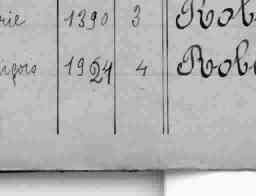 rie 1390 3 Rob
çois 1924 4 Rob